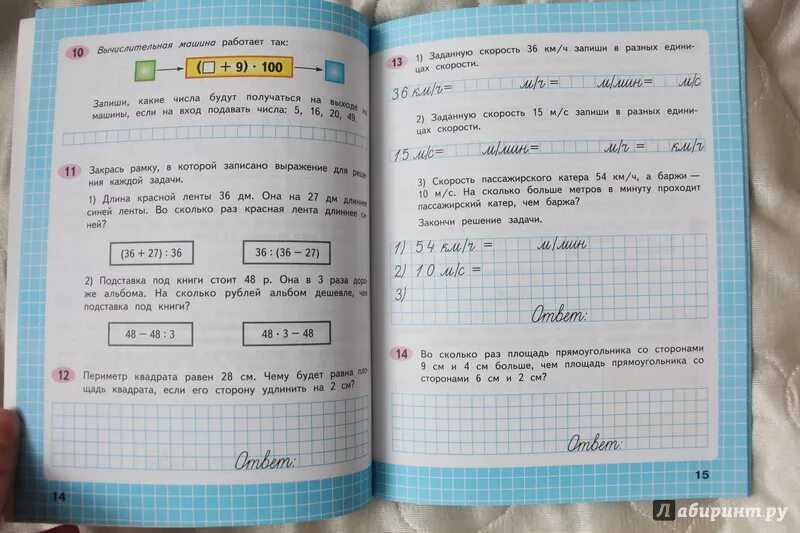 10 Вычислительная машина работает так:
(□ + 9) · 100
Запиши, какие числа будут получаться на выходе из
машины, если на вход подавать числа: 5, 16, 20, 49.
11 Закрась рамку, в которой записано выражение для реше-
ния каждой задачи.
1) Длина красной ленты 36 дм. Она на 27 дм длиннее
синей ленты. Во сколько раз красная лента длиннее си-
ней?
(36 + 27) : 36
36 : (36 − 27)
2) Подставка под книги стоит 48 р. Она в 3 раза доро-
же альбома. На сколько рублей альбом дешевле, чем
подставка под книги?
48 − 48 : 3
48 · 3 − 48
12 Периметр квадрата равен 28 см. Чему будет равна пло-
щадь квадрата, если его сторону удлинить на 2 см?
Ответ:
14
13 1) Заданную скорость 36 км/ч запиши в разных едини-
цах скорости.
36 км/ч= м/ч= м/мин= м/с
2) Заданную скорость 15 м/с запиши в разных едини-
цах скорости.
15 м/с= м/мин= м/ч = км/ч
3) Скорость пассажирского катера 54 км/ч, а баржи —
10 м/с. На сколько больше метров в минуту проходит
пассажирский катер, чем баржа?
Закончи решение задачи.
1) 54 км/ч = м/мин
2) 10 м/с =
3)
Ответ:
14 Во сколько раз площадь прямоугольника со сторонами
9 см и 4 см больше, чем площадь прямоугольника со
сторонами 6 см и 2 см?
Ответ:
15
Лабиринт.ру